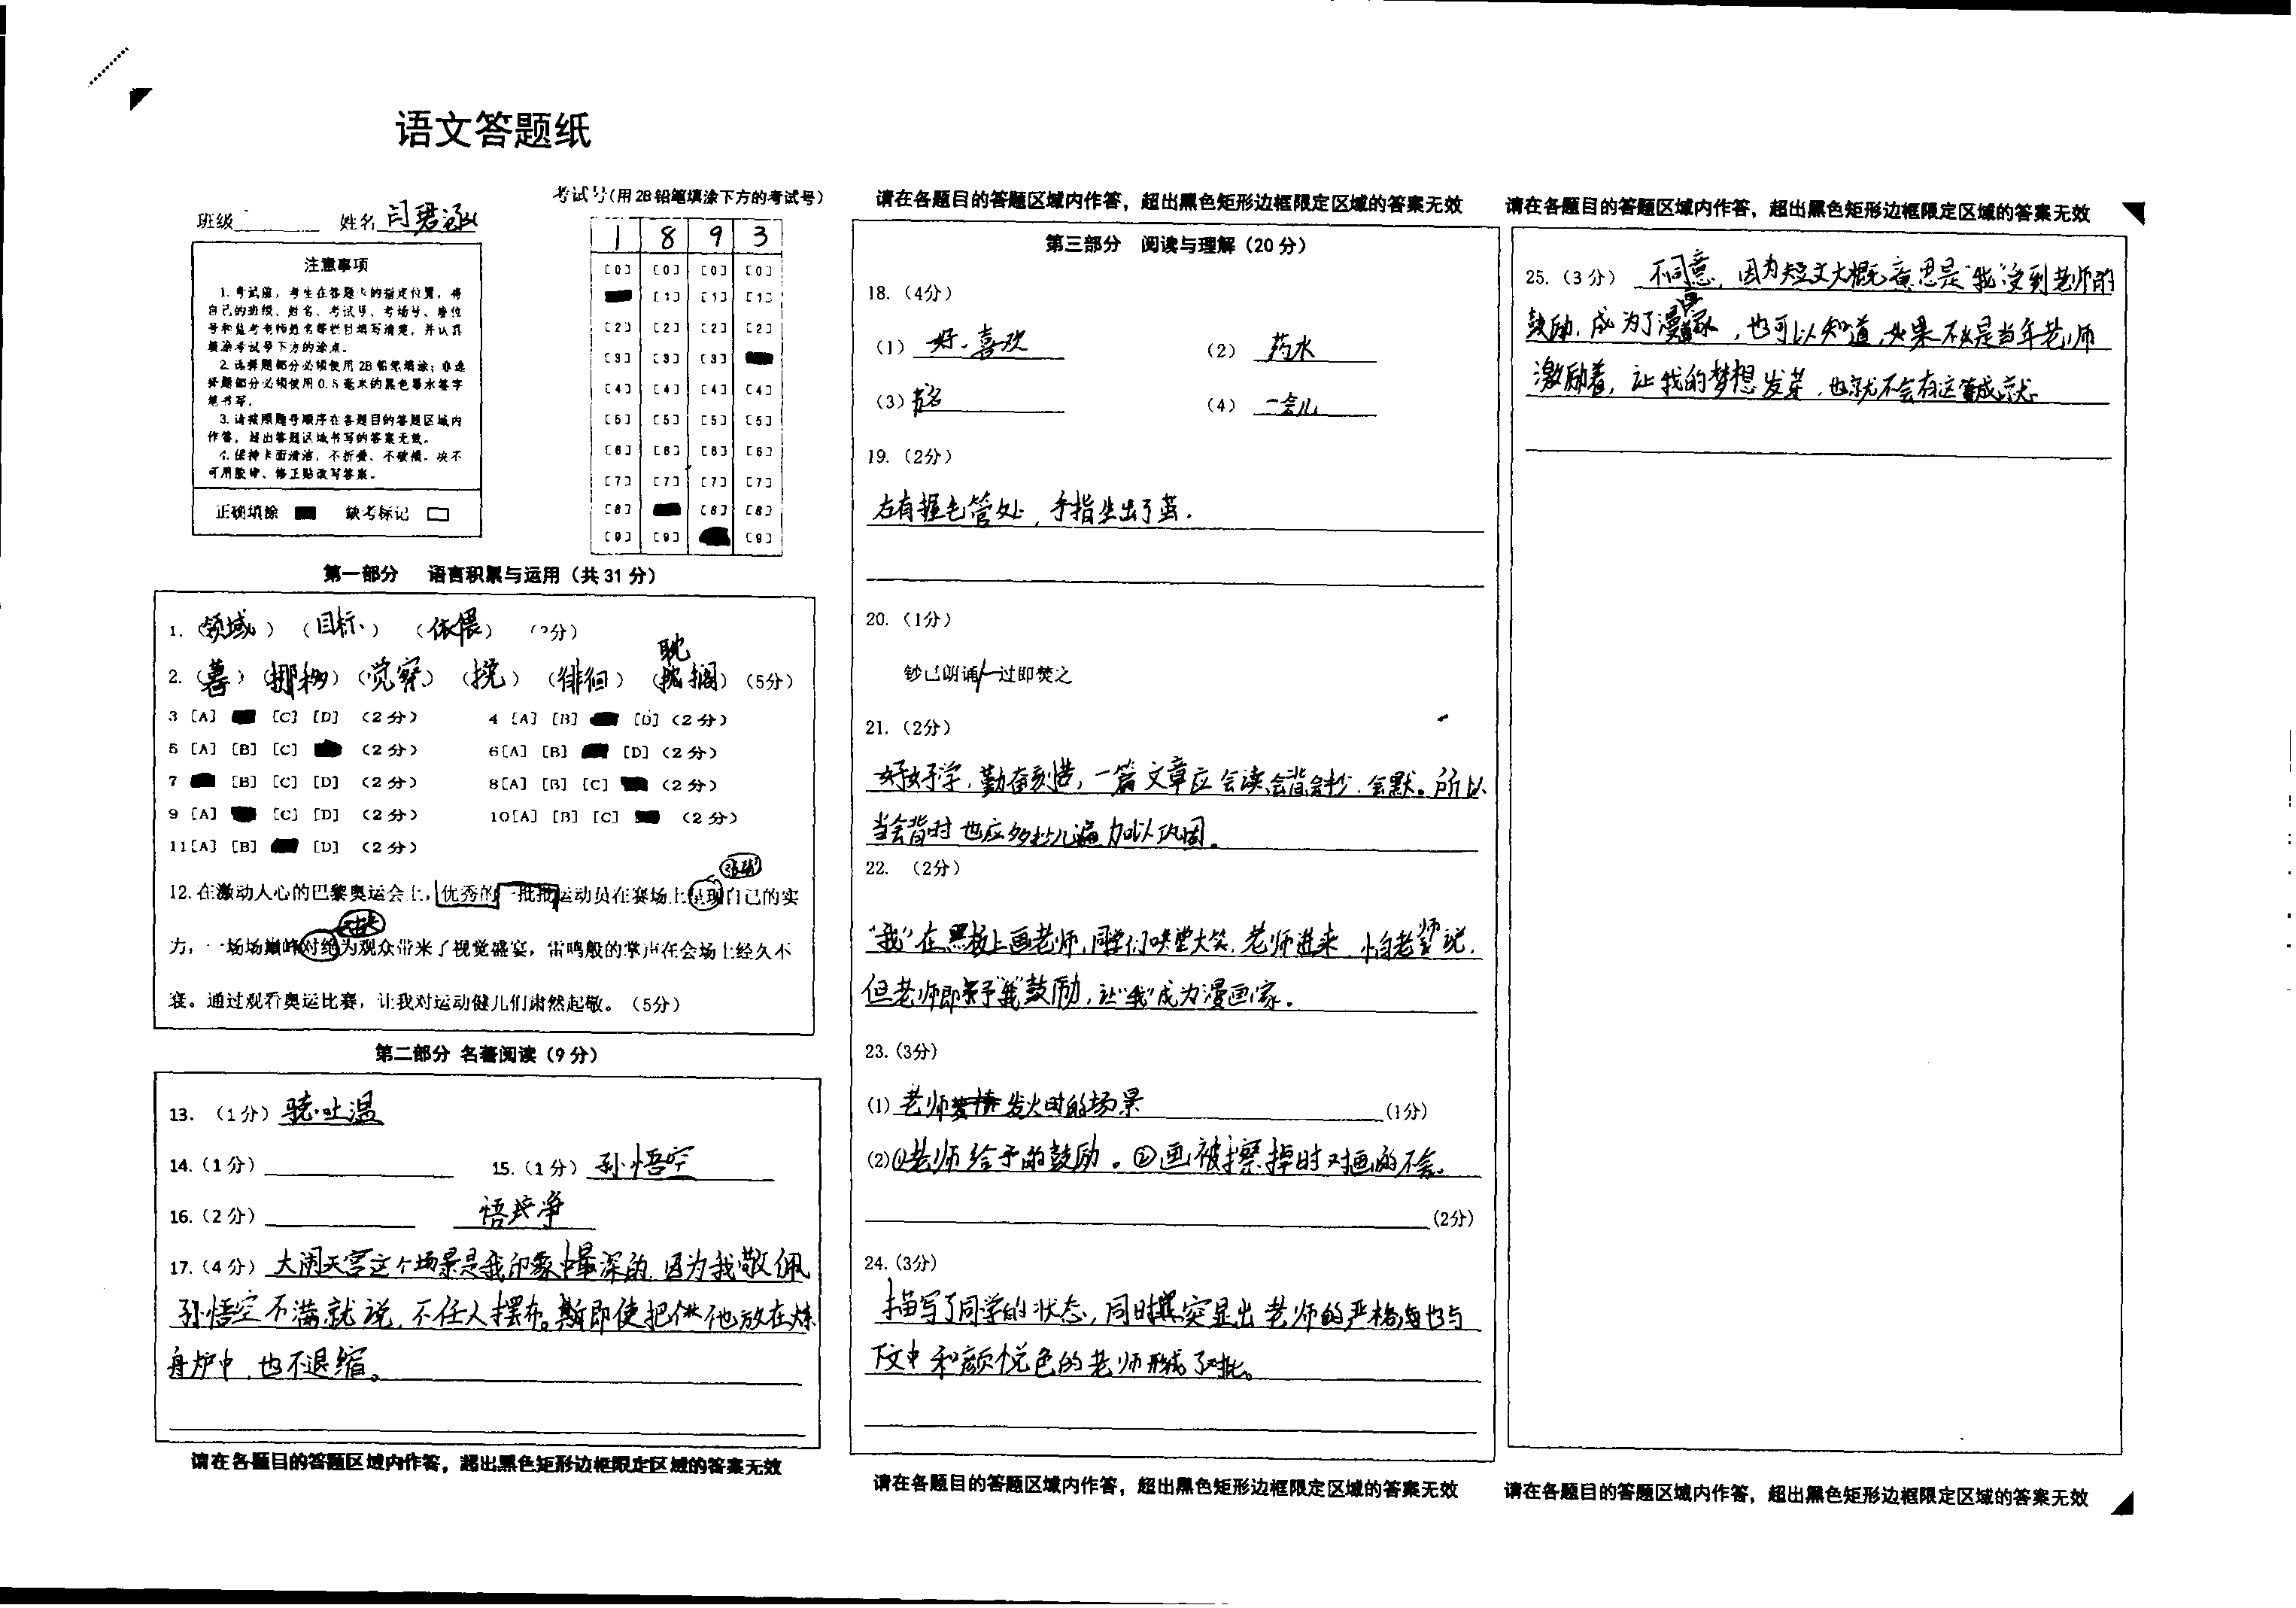 语文答题纸
班级 姓名 闫君涵
考试号(用2B铅笔填涂下方的考试号)
1 8 9 3
[0] [0] [0] [0]
[1] [1] [1]
[2] [2] [2] [2]
[3] [3] [3]
[4] [4] [4] [4]
[5] [5] [5] [5]
[6] [6] [6] [6]
[7] [7] [7] [7]
[8] [8] [8]
[9] [9] [9]
注意事项
1.考试前,考生在答题卡的指定位置,将
自己的班级、姓名、考试号、考场号、座位
号和监考老师姓名等栏目填写清楚,并认真
填涂考试号下方的涂点。
2.选择题部分必须使用2B铅笔填涂;非选
择题部分必须使用0.5毫米的黑色墨水签字
笔书写。
3.请按照题号顺序在各题目的答题区域内
作答,超出答题区域书写的答案无效。
4.保持卡面清洁,不折叠、不破损。决不
可用胶带、修正贴改写答案。
正确填涂 缺考标记
第一部分 语言积累与运用(共31分)
1.(领域)(目标)(依偎)
2.(暮)(挪移)(觉察)(挠)(徘徊)(耽搁)(5分)
3 [A] [C] [D] (2分) 4 [A] [B] [D] (2分)
5 [A] [B] [C] (2分) 6[A] [B] [D] (2分)
7 [B] [C] [D] (2分) 8[A] [B] [C] (2分)
9 [A] [C] [D] (2分) 10[A] [B] [C] (2分)
11[A] [B] [D] (2分)
12.在激动人心的巴黎奥运会上,优秀的一批批运动员在赛场上呈现自己的实
力,一场场巅峰对绝为观众带来了视觉盛宴,雷鸣般的掌声在会场上经久不
衰。通过观看奥运比赛,让我对运动健儿们肃然起敬。(5分)
第二部分 名著阅读(9分)
13.(1分) 骁·吐温
14.(1分) 15.(1分) 孙悟空
16.(2分) 悟净
17.(4分) 大闹天宫这个场景是我印象中最深的,因为我敬佩
孙悟空不满就说,不任人摆布。即使把他放在炼
丹炉中,也不退缩。
请在各题目的答题区域内作答,超出黑色矩形边框限定区域的答案无效
请在各题目的答题区域内作答,超出黑色矩形边框限定区域的答案无效
第三部分 阅读与理解(20分)
18.(4分)
(1) 好.喜欢 (2) 药水
(3) (4) 一会儿
19.(2分)
右有握毛管处,手指生出了茧.
20.(1分)
钞已朗诵/一过即焚之
21.(2分)
好好学,勤奋刻苦,一篇文章应会读,会背,会抄.会默。所以
当会背时也应多抄几遍加以巩固。
22.(2分)
“我”在黑板上画老师,同学们哄堂大笑.老师进来,怕老师说.
但老师即给予“我”鼓励,让“我”成为漫画家.
23.(3分)
(1)老师发火时的场景 (1分)
(2)①老师给予的鼓励。②画被擦掉时对画的不舍。
(2分)
24.(3分)
描写了同学的状态,同时突显出老师的严格,也与
下文中和颜悦色的老师形成了对比。
请在各题目的答题区域内作答,超出黑色矩形边框限定区域的答案无效
请在各题目的答题区域内作答,超出黑色矩形边框限定区域的答案无效
25.(3分) 不同意,因为短文大概意思是“我”受到老师的
鼓励,成为了漫画家,也可以知道,如果不是当年老师
激励着,让我的梦想发芽,也就不会有这成就
请在各题目的答题区域内作答,超出黑色矩形边框限定区域的答案无效